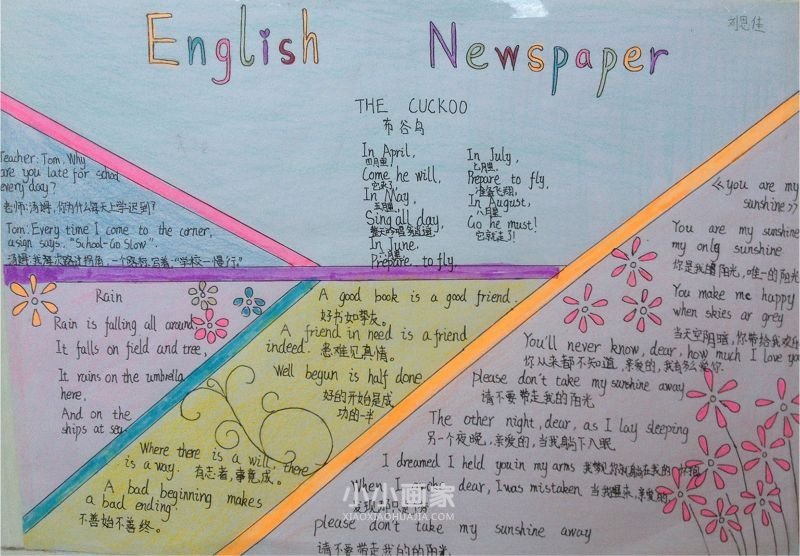 English Newspaper
刘恩佳
THE CUCKOO
布谷鸟
In April,
四月里
Come he will,
它来了
In May,
五月里
Sing all day,
整天吟唱
In June,
六月里
Prepare to fly
In July,
七月里
Prepare to fly,
准备飞翔,
In August,
八月里
Go he must!
它就走了!
Teacher: Tom. Why
are you late for school
every day?
老师:汤姆,你为什么每天上学迟到?
Tom: Every time I come to the corner,
a sign says. "School-Go Slow".
汤姆:我每次路过拐角,一个路标写着:"学校—慢行"。
Rain
Rain is falling all around
It falls on field and tree,
It rains on the umbrella
here,
And on the
ships at sea.
A good book is a good friend.
好书如挚友。
A friend in need is a friend
indeed. 患难见真情。
Well begun is half done
好的开始是成
功的一半
Where there is a will, there
is a way. 有志者,事竟成。
A bad beginning makes
a bad ending.
不善始不善终。
《you are my
sunshine》
You are my sunshine
my only sunshine
你是我的阳光,唯一的阳光
You make me happy
when skies ar grey
当天空阴暗,你带给我欢乐
You'll never know, dear, how much I love you
你从来都不知道,亲爱的,我有多么爱你
please don't take my sunshine away
请不要带走我的阳光
The other night, dear, as I lay sleeping
另一个夜晚,亲爱的,当我躺下入眠
I dreamed I held you in my arms 我梦见你
When I dear, I was mistaken 当我醒来,亲爱的
发现
please don't take my sunshine away
请不要带走我的阳光
小小画家
XIAOXIAOHUAJIA.COM